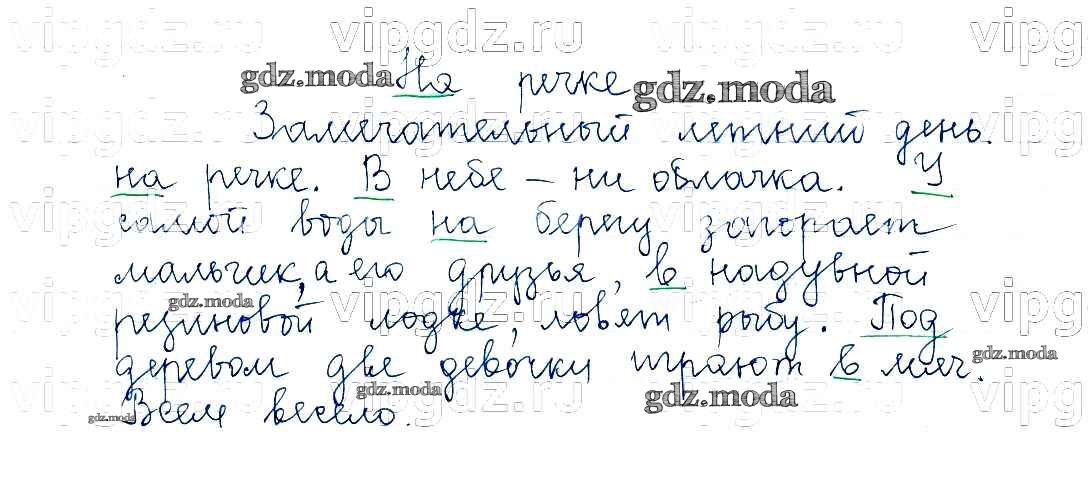 vipgdz.ru vipgdz.ru vipgdz.ru vipgdz.ru
gdz.moda На речке gdz.moda
Замечательный летний день
на речке. В небе – ни облачка. У
самой воды на берегу загорает
мальчик, а его друзья, в надувной
gdz.moda
резиновой лодке, ловят рыбу. Под
деревом две девочки играют в мяч.
gdz.moda
gdz.moda Всем весело. gdz.moda gdz.moda